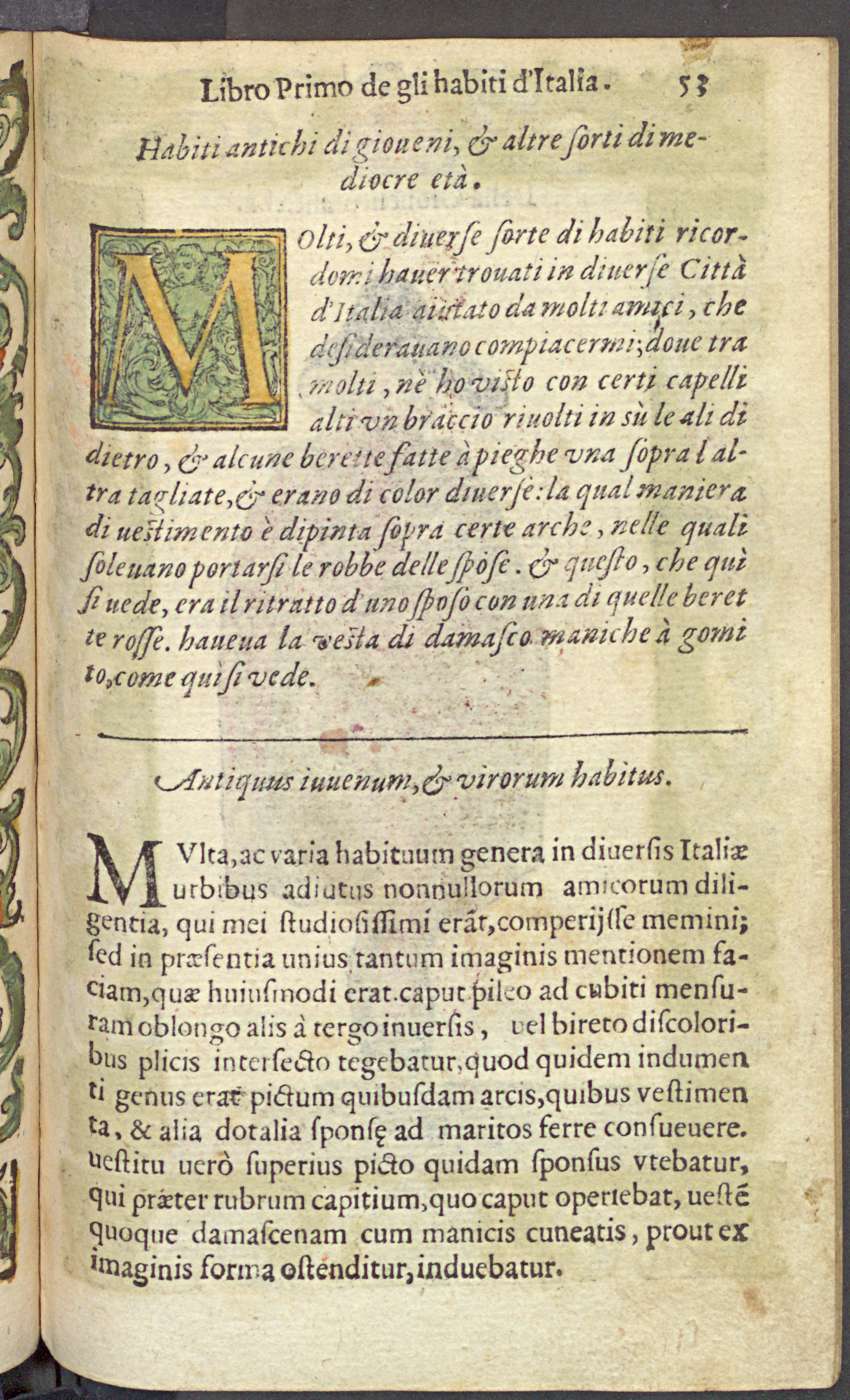 Libro Primo de gli habiti d'Italia. 53
Habiti antichi di gioueni, & altre ſorti di me-
diocre età.
MOlti, & diuerſe ſorte di habiti ricor-
domi hauer trouati in diuerſe Città
d'Italia aiutato da molti amici, che
deſiderauano compiacermi; doue tra
molti, nè ho viſto con certi capelli
alti vn braccio riuolti in sù le ali di
dietro, & alcune berette fatte à pieghe vna ſopra l al-
tra tagliate, & erano di color diuerſe: la qual maniera
di ueſtimento è dipinta ſopra certe arche, nelle quali
ſoleuano portarſi le robbe delle ſpoſe. & queſto, che quì
ſi uede, era il ritratto d'uno ſpoſo con una di quelle beret
te roſſe. haueua la veſta di damaſco maniche à gomi
to, come quì ſi vede.
Antiquus iuuenum, & virorum habitus.
MVlta, ac varia habituum genera in diuerſis Italiæ
urbibus adiutus nonnullorum amicorum dili-
gentia, qui mei ſtudioſiſſimi erāt, comperijſſe memini;
ſed in præſentia unius tantum imaginis mentionem fa-
ciam, quæ huiuſmodi erat. caput pileo ad cubiti menſu-
ram oblongo alis à tergo inuerſis, uel bireto diſcolori-
bus plicis interſecto tegebatur, quod quidem indumen
ti genus erat pictum quibuſdam arcis, quibus veſtimen
ta, & alia dotalia ſponſę ad maritos ferre conſueuere.
ueſtitu uerò ſuperius picto quidam ſponſus vtebatur,
qui præter rubrum capitium, quo caput operiebat, ueſtē
quoque damaſcenam cum manicis cuneatis, prout ex
imaginis forma oſtenditur, induebatur.